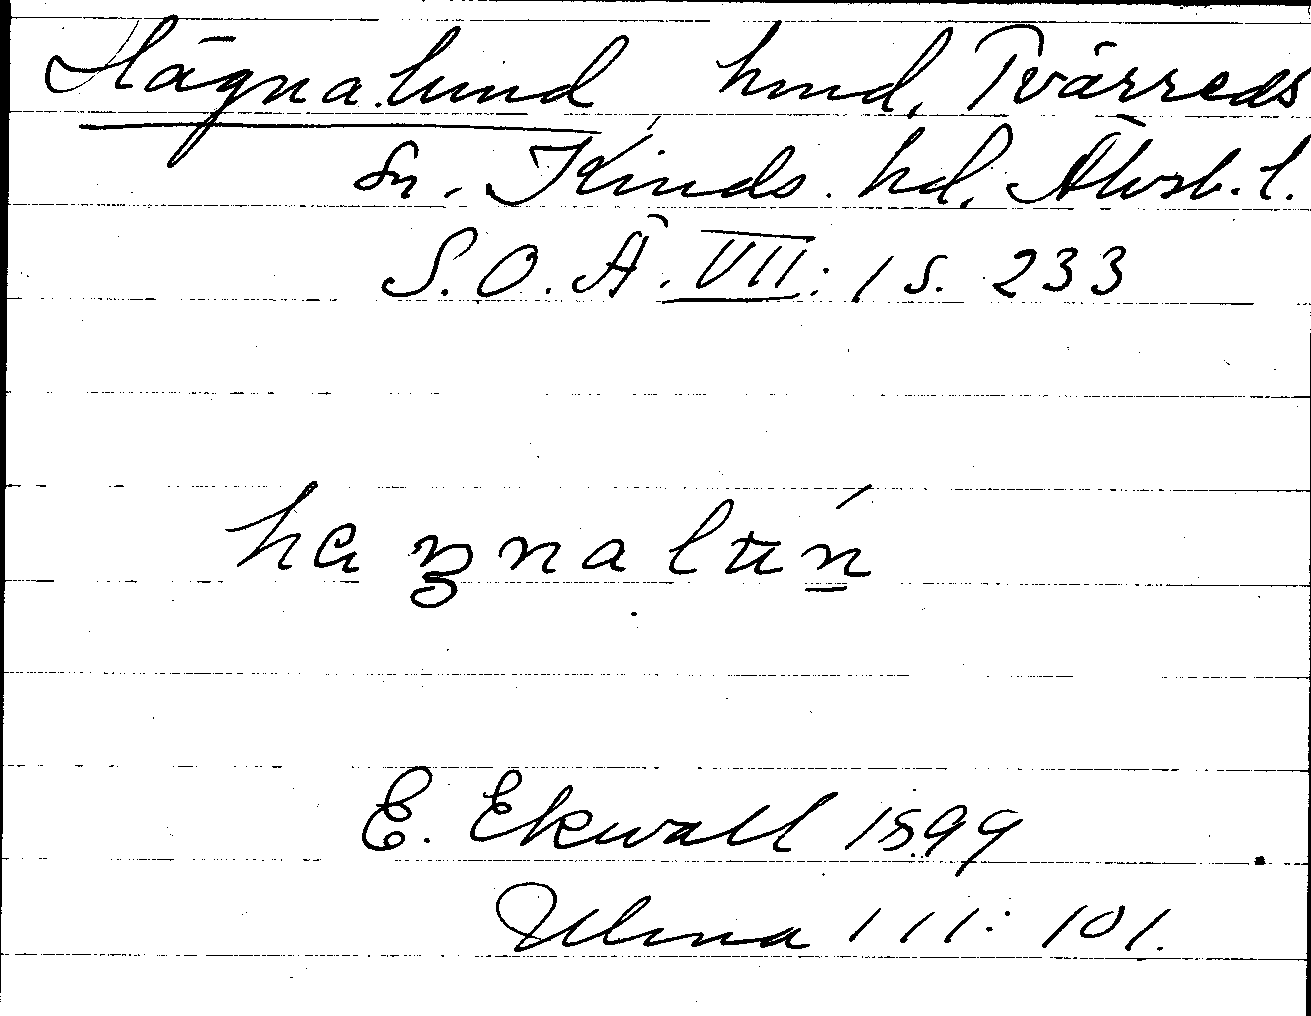 Hägnalund hmd, Tvärreds
sn. Kinds hd, Älvsb. l.
S.O.Ä. VII: 1 s. 233
E. Ekwall 1899
Ulma 111: 101.